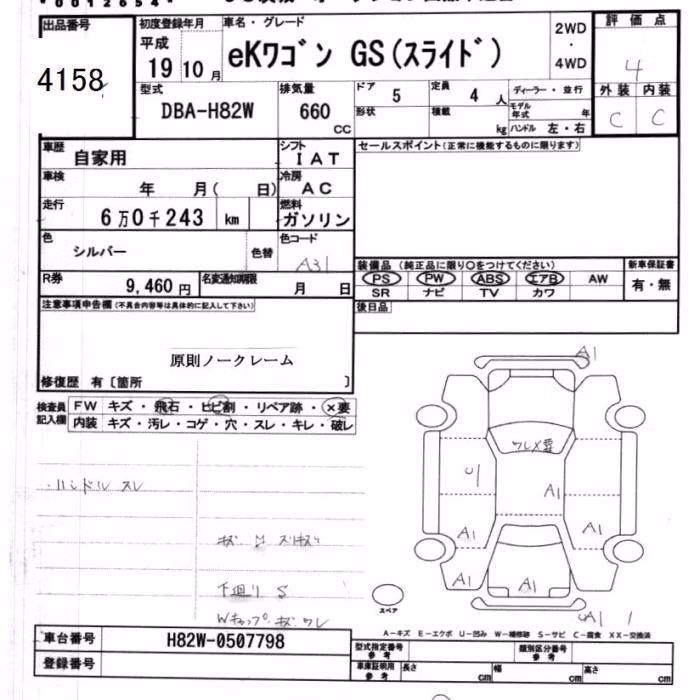 出品番号
4158
初度登録年月
平成
19 10 月
車名・グレード
eKワゴン GS(スライド)
2WD
・
4WD
評価点
4
外装 内装
C C
型式
DBA-H82W
排気量
660
CC
ドア
5
定員
4 人
形状
積載
kg
ディーラー・並行
モデル年式
年
ハンドル 左・右
車歴
自家用
シフト
I A T
セールスポイント(正常に機能するものに限ります)
車検
年 月( 日)
冷房
A C
走行
6万0千243 km
燃料
ガソリン
色
シルバー
色替
色コード
A31
装備品 (純正品に限り○をつけてください)
PS PW ABS エアB AW
SR ナビ TV カワ
新車保証書
有・無
R券
9,460円
名変通知期限
月 日
後日品
注意事項申告欄(不具合内容等は具体的に記入して下さい)
原則ノークレーム
修復歴 有〔箇所 〕
検査員記入欄
FW キズ・飛石・ヒビ割・リペア跡・×要
内装 キズ・汚レ・コゲ・穴・スレ・キレ・破レ
・ハンドル スレ
下廻り S
Wキャップ キズ ワレ
A1
ワレX要
U
A1
A1
A1
A1
A1
スペア
A1
A-キズ E-エクボ U-凹み W-補修跡 S-サビ C-腐食 XX-交換済
車台番号
H82W-0507798
登録番号
型式指定番号
参考
類別区分番号
参考
車庫証明用
参考
長さ
cm
幅
cm
高さ
cm